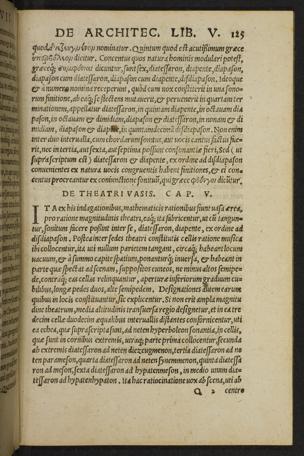 DE ARCHITEC. LIB. V. 125
nominatur. Quintum quod est acutissimum græce
dicitur. Concentus quos natura hominis modulari potest,
græce dicuntur, sunt sex, diatessaron, diapente, diapason,
diapason cum diatessaron, diapason cum diapente, disdiapason. Ideoque
& a numero nomina receperunt, quod cum vox constiterit in una sono-
rum finitione, ab eaq; se flectens mutaverit, & pervenerit in quartam ter
minationem, appellatur diatessaron, in quintam diapente, in octavam dia
pason, in octavam & dimidiam, diapason & diatessaron, in nonam & di
midiam, diapason & diapente, in quintamdecimā disdiapason. Non enim
inter duo intervalla, cum chordarum sonitus, aut vocis cantus factus fue-
rit, nec in tertia, aut sexta, aut septima possunt consonantiæ fieri, Sed ( ut
suprascriptum est ) diatessaron & diapente, ex ordine ad disdiapason
convenientes ex natura vocis congruentis habent finitiones, & ei con-
centus procreantur ex coniunctione sonituū, qui græce dicūtur,
DE THEATRI VASIS. CAP. V.
ITA ex his indagationibus, mathematicis rationibus fiunt vasa ærea,
pro ratione magnitudinis theatri, eaq; ita fabricentur, ut cū tangun-
tur, sonitum facere possint inter se, diatessaron, diapente, ex ordine ad
disdiapason. Postea inter sedes theatri constitutis cellis ratione musica
ibi collocentur, ita uti nullum parietem tangant, circaq; habeant locum
vacuum, & a summo capite spatium, ponanturq; inversa, & habeant in
parte quæ spectat ad scenam, suppositos cuneos, ne minus altos semipe-
de, contraq; eas cellas relinquantur, aperturæ inferiorum graduum cu-
bilibus, longæ pedes duos, alte semipedem. Designationes autem earum
quibus in locis constituantur, sic explicentur, Si non erit ampla magnitu
dine theatrum, media altitudinis transversa regio designetur, et in ea tre
decim cellæ duodecim æqualibus intervallis distantes confornicentur, uti
ea echea, quæ suprascripta sunt, ad neten hyperboleon sonantia, in cellis,
quæ sunt in cornibus extremis, utraq; parte prima collocentur, secunda
ab extremis diatessaron ad neten diezeugmenon, tertia diatessaron ad ne
ten parameson, quarta diatessaron ad neten synemmenon, quinta diatessa
ron ad meson, sexta diatessaron ad hypatenmeson, in medio unum dia-
tessaron ad hypatenhypaton. Ita hac ratiocinatione vox ab scena, uti ab
Q 2 centro